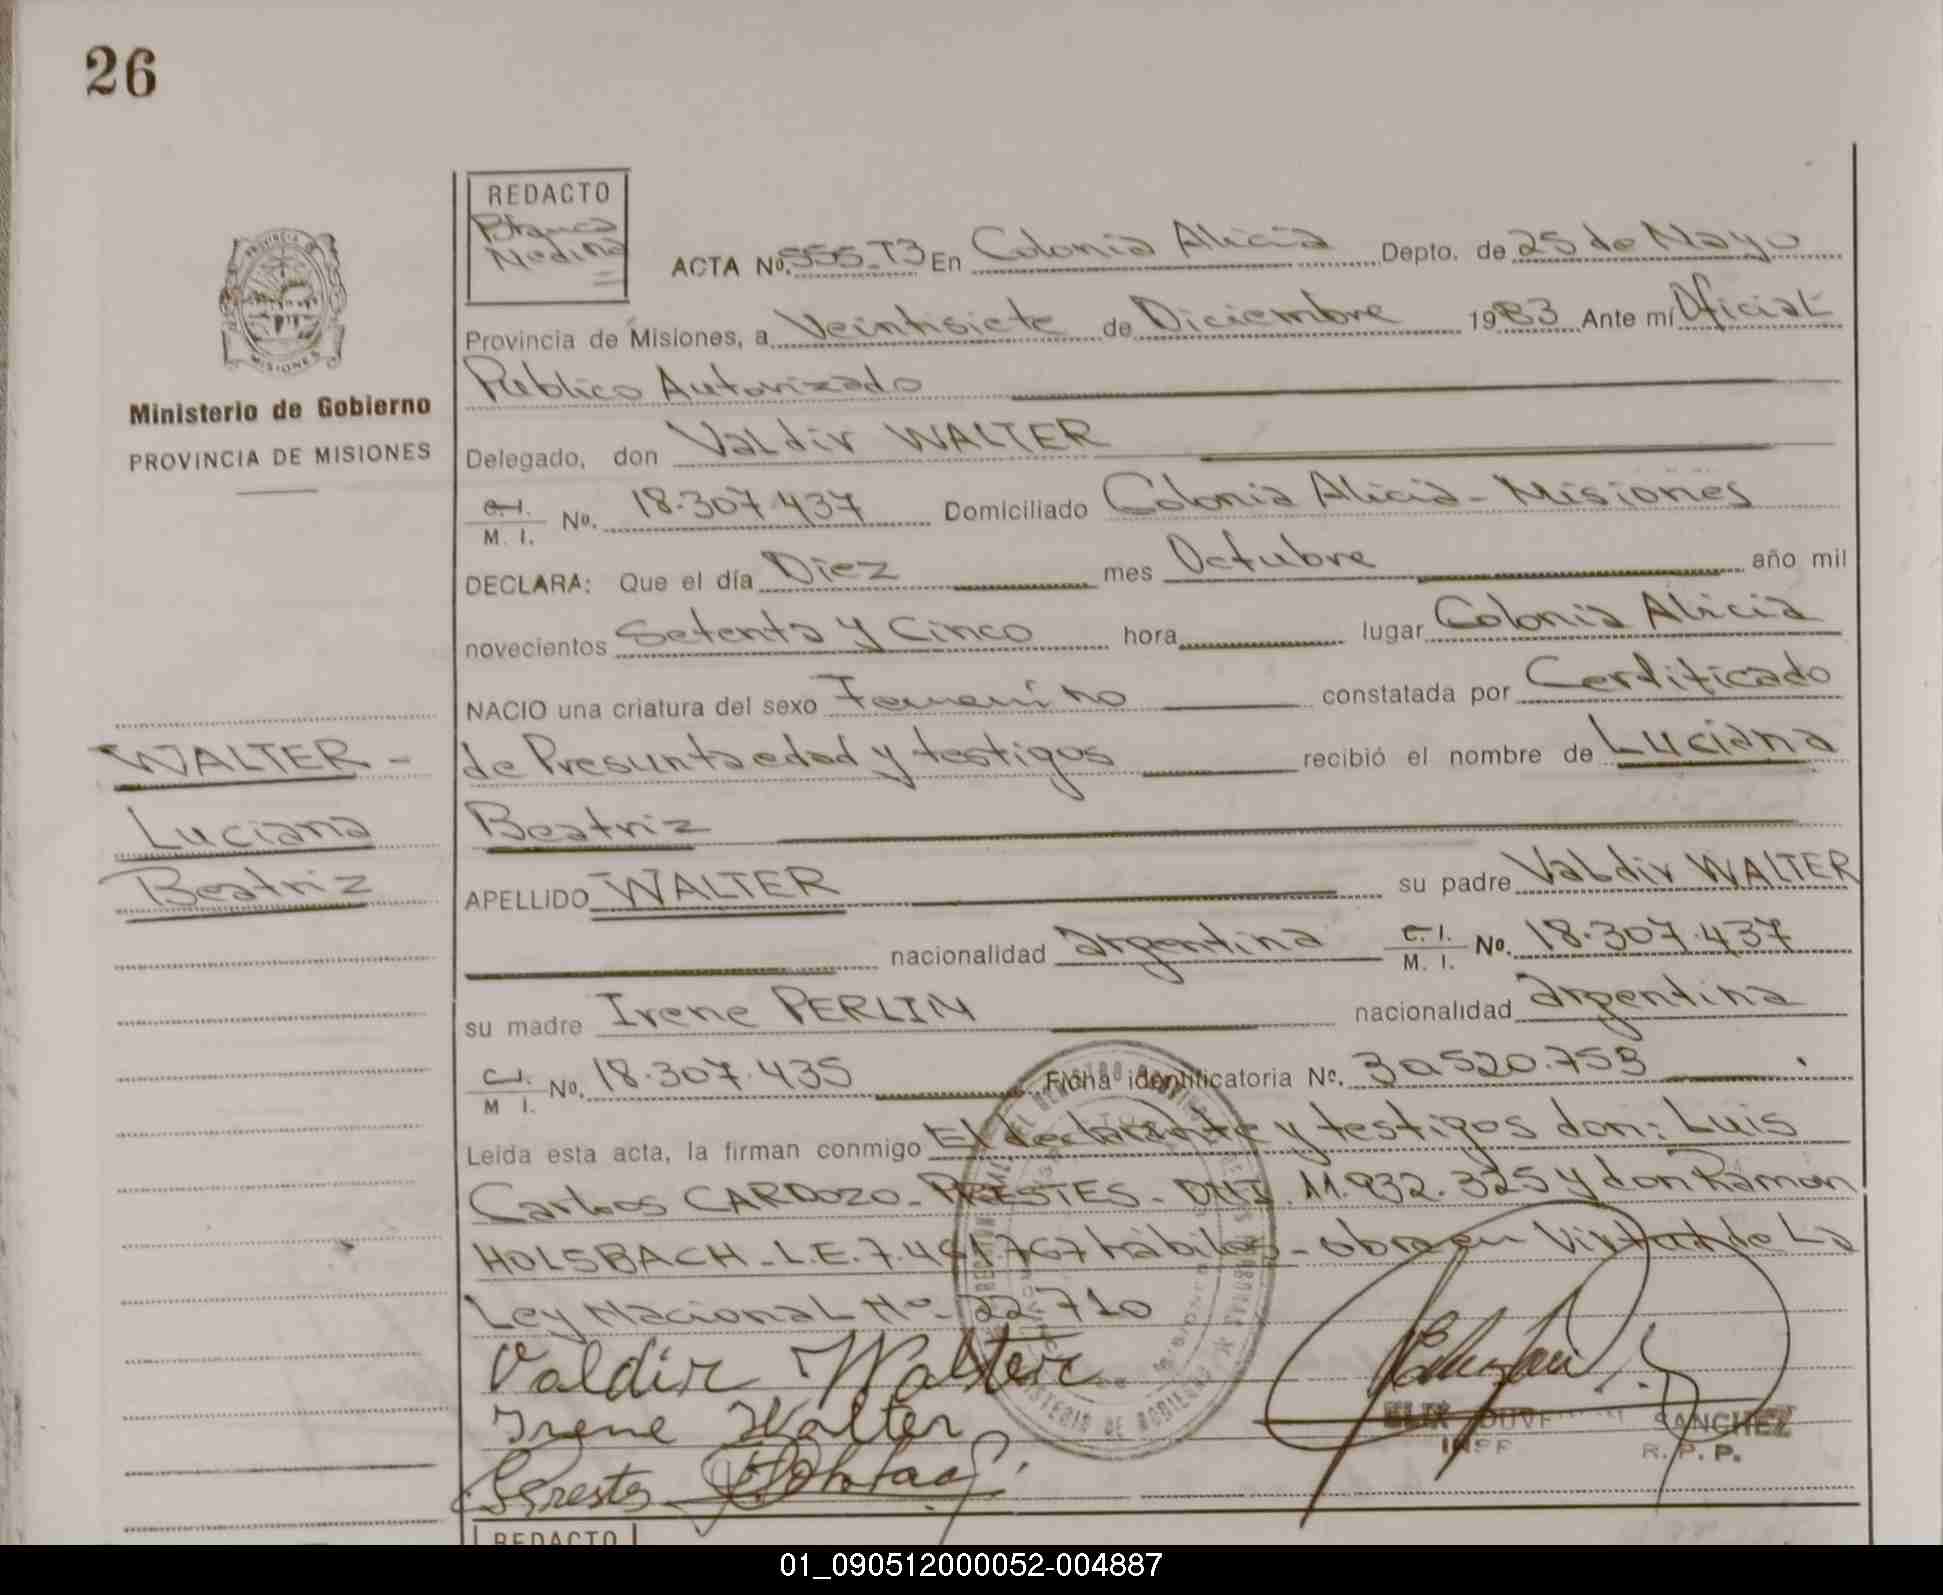 26
REDACTO
Blanca
Medina
ACTA No. 555-T3 En Colonia Alicia Depto. de 25 de Mayo
Provincia de Misiones, a Veintisiete de Diciembre 1983 Ante mí Oficial
Publico Autorizado
PROVINCIA DE
MISIONES
Ministerio de Gobierno
PROVINCIA DE MISIONES
Delegado, don Valdir WALTER
C.I. M. I. No. 18.307.437 Domiciliado Colonia Alicia - Misiones
DECLARA: Que el día Diez mes Octubre año mil
novecientos Setenta y Cinco hora lugar Colonia Alicia
NACIO una criatura del sexo Femenino constatada por Certificado
WALTER -
de Presunta edad y testigos recibió el nombre de Luciana
Luciana
Beatriz
Beatriz
APELLIDO WALTER su padre Valdir WALTER
nacionalidad argentina C. I. M. I. No. 18.307.437
su madre Irene PERLIN nacionalidad argentina
C.I. M I. No. 18.307.435 Ficha identificatoria No. 30520.753
Leida esta acta, la firman conmigo El declarante y testigos don: Luis
Carlos CARDOZO - PRESTES - DNI. 11.932.325 y don Ramon
HOLSBACH - L.E. 7.491767 hábiles - obra en Virtud de La
Ley Nacional No - 22710
Valdir Walter
Irene Walter
Prestes
SANCHEZ
R. P. P.
REDACTO
01_090512000052-004887